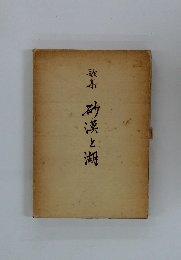 歌集
砂漠と湖